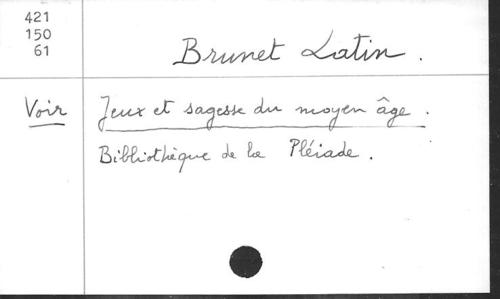 421
150
61
Brunet Latin.
Voir Jeux et sagesse du moyen âge.
Bibliothèque de la Pléiade.